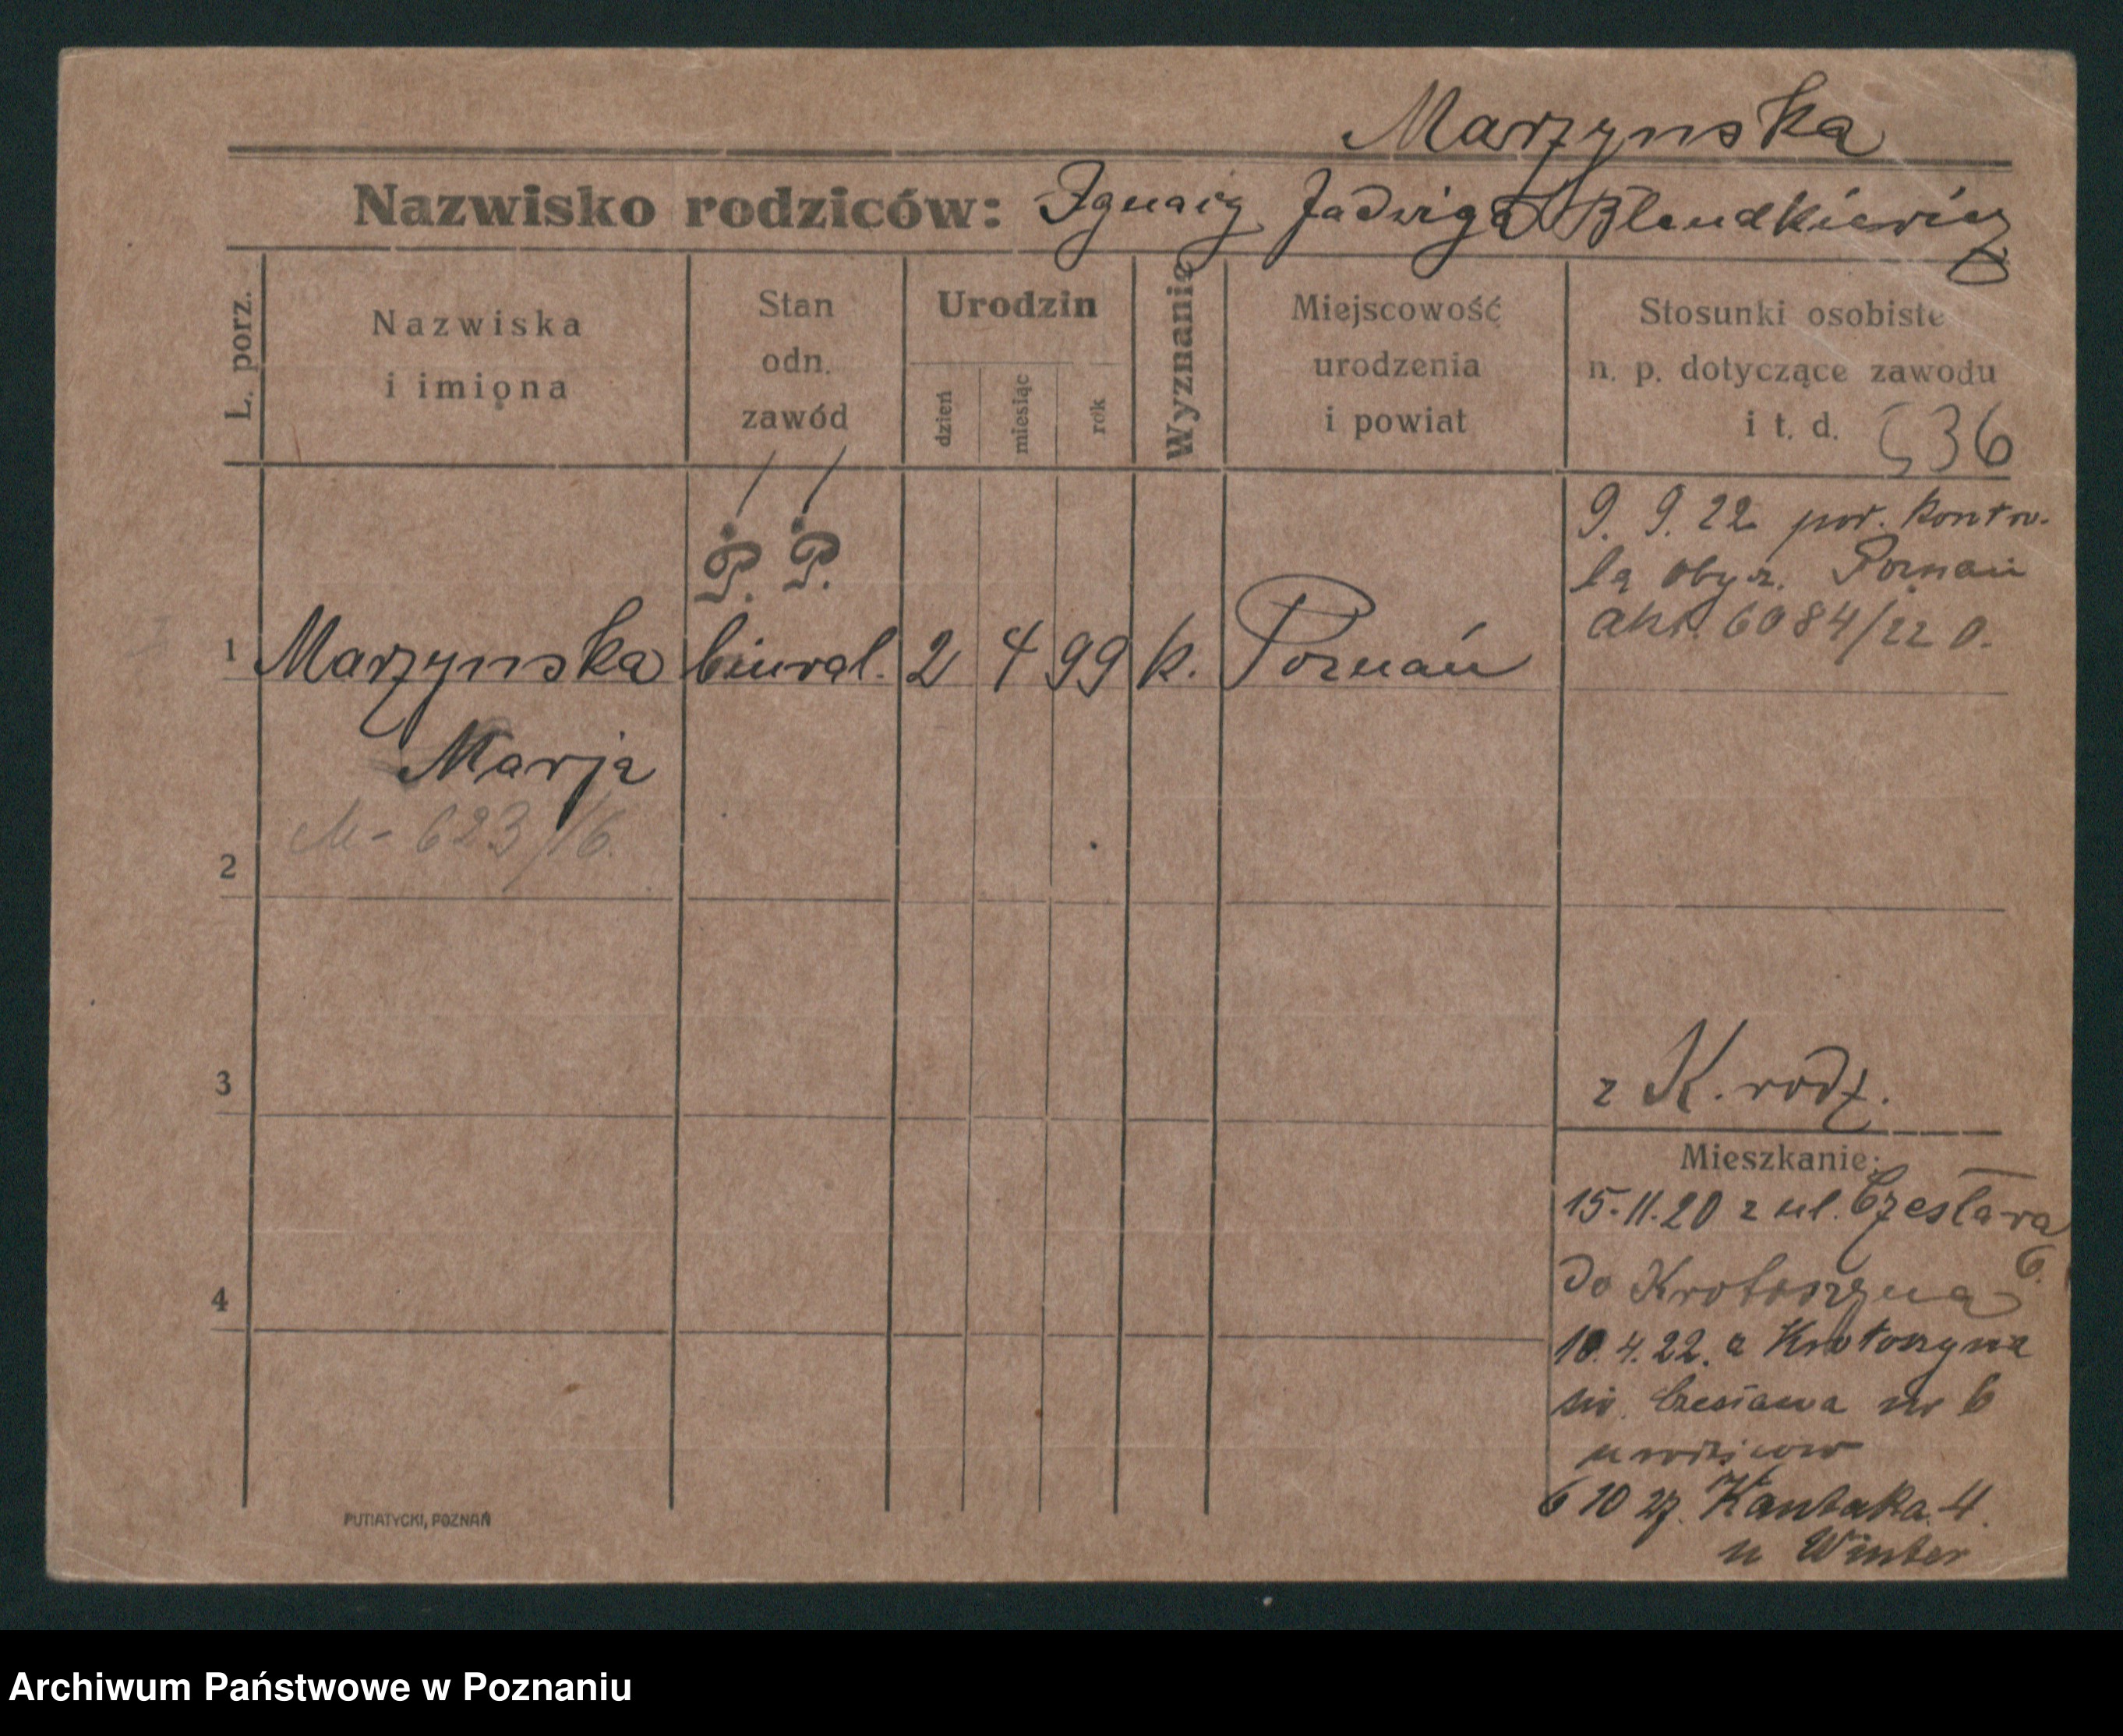 Marzynska
Nazwisko rodziców: Ignacy Jadwiga Blendkiewicz
L. porz.
Nazwiska
i imiona
Stan
odn.
zawód
Urodzin
dzień
miesiąc
rok
Wyznanie
Miejscowość
urodzenia
i powiat
Stosunki osobiste
n. p. dotyczące zawodu
i t. d.
536
P. P.
9. 9. 22 pod. kontro-
lą obyz. Poznań
akt. 6084/22 O.
1 Marzynska biural. 2 4 99 k. Poznań
Marja
M- 623/16.
2
3
z K. rodz.
Mieszkanie:
15.11.20 z ul. Czesława
6.
do Krotoszyna
4
10.4.22. z Krotoszyna
Czesława nr 6
u rodziców
6 10 27. Kantaka 4.
u Winter
PUTIATYCKI, POZNAŃ
Archiwum Państwowe w Poznaniu